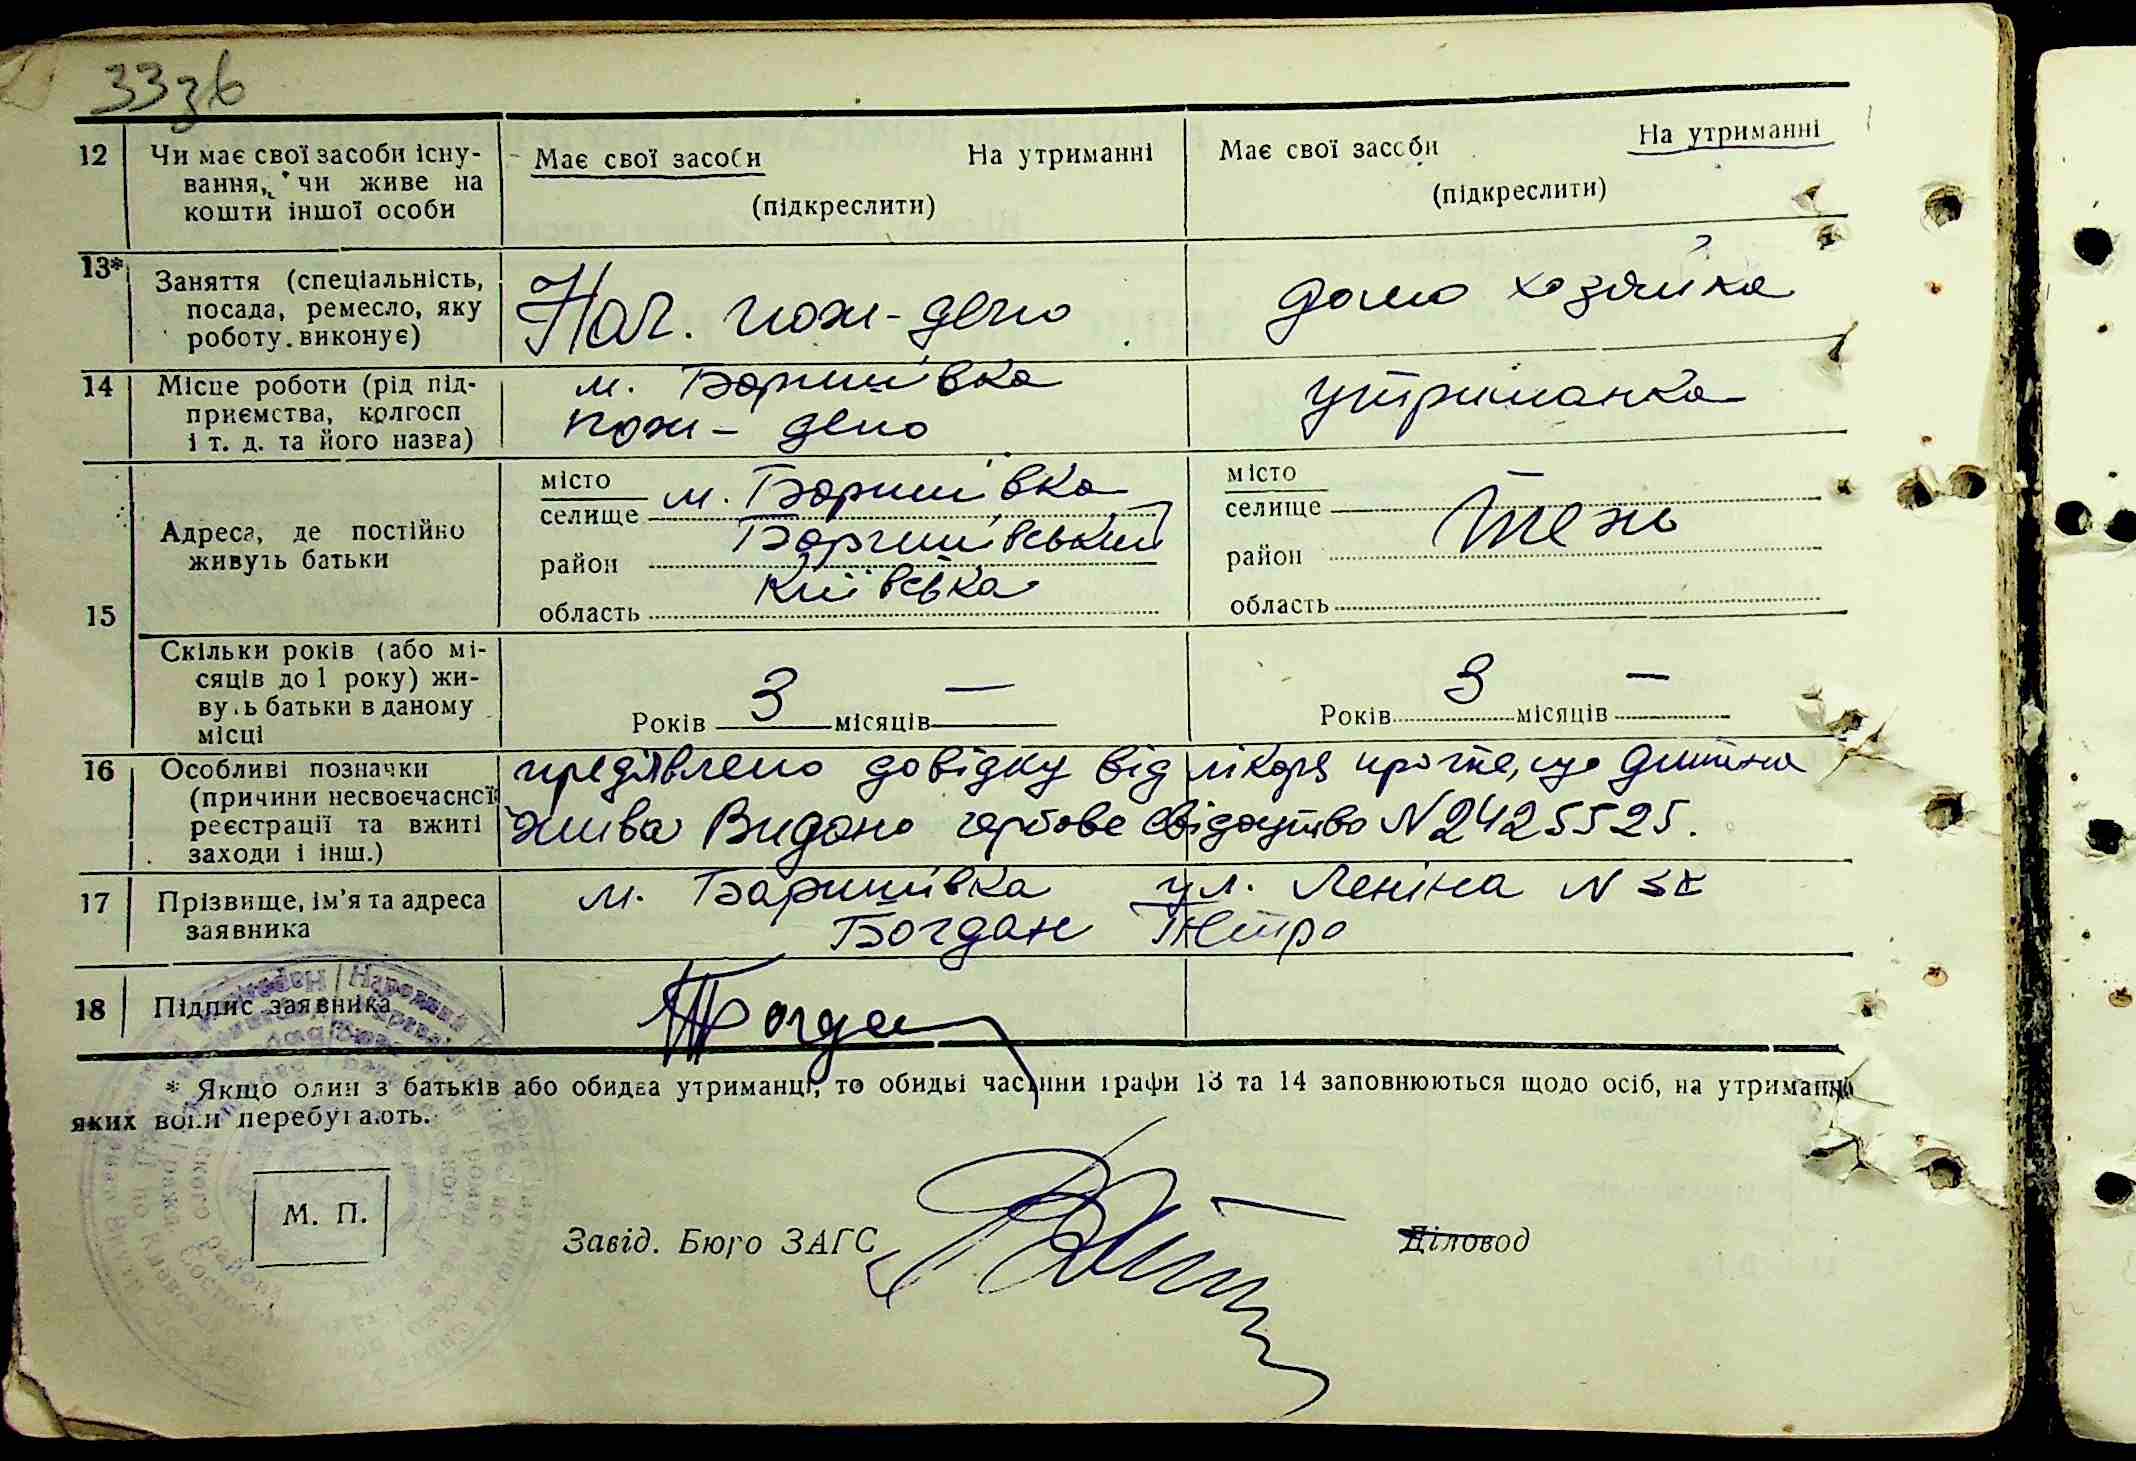 33зб
12 Чи має свої засоби існу- Має свої засоби На утриманні Має свої засоби На утриманні
вання, чи живе на
кошти іншої особи (підкреслити) (підкреслити)
13* Заняття (спеціальність, Нач. пож-депо домо хозяйка
посада, ремесло, яку
роботу виконує)
14 Місце роботи (рід під- м. Баришівка утриманка
приємства, колгосп пож- депо
і т. д. та його назва)
15 Адреса, де постійно
живуть батьки
місто м. Баришівка місто —
селище селище
район Баришівський район Теж
область Київська область
Скільки років (або мі-
сяців до 1 року) жи-
вуть батьки в даному
місці
Років 3 місяців — Років 3 місяців —
16 Особливі позначки предявлено довідку від лікаря про те, що дитина
(причини несвоєчасної жива Видано гербове свідоцтво №2425525.
реєстрації та вжиті
заходи і інш.)
17 Прізвище, ім'я та адреса м. Баришівка ул. Леніна N
заявника Богдан Петро
18 Підпис заявника Богдан
* Якщо один з батьків або обидва утриманці, то обидві частини графи 13 та 14 заповнюються щодо осіб, на утриманні
яких вони перебувають.
М. П.
Завід. Бюро ЗАГС Діловод